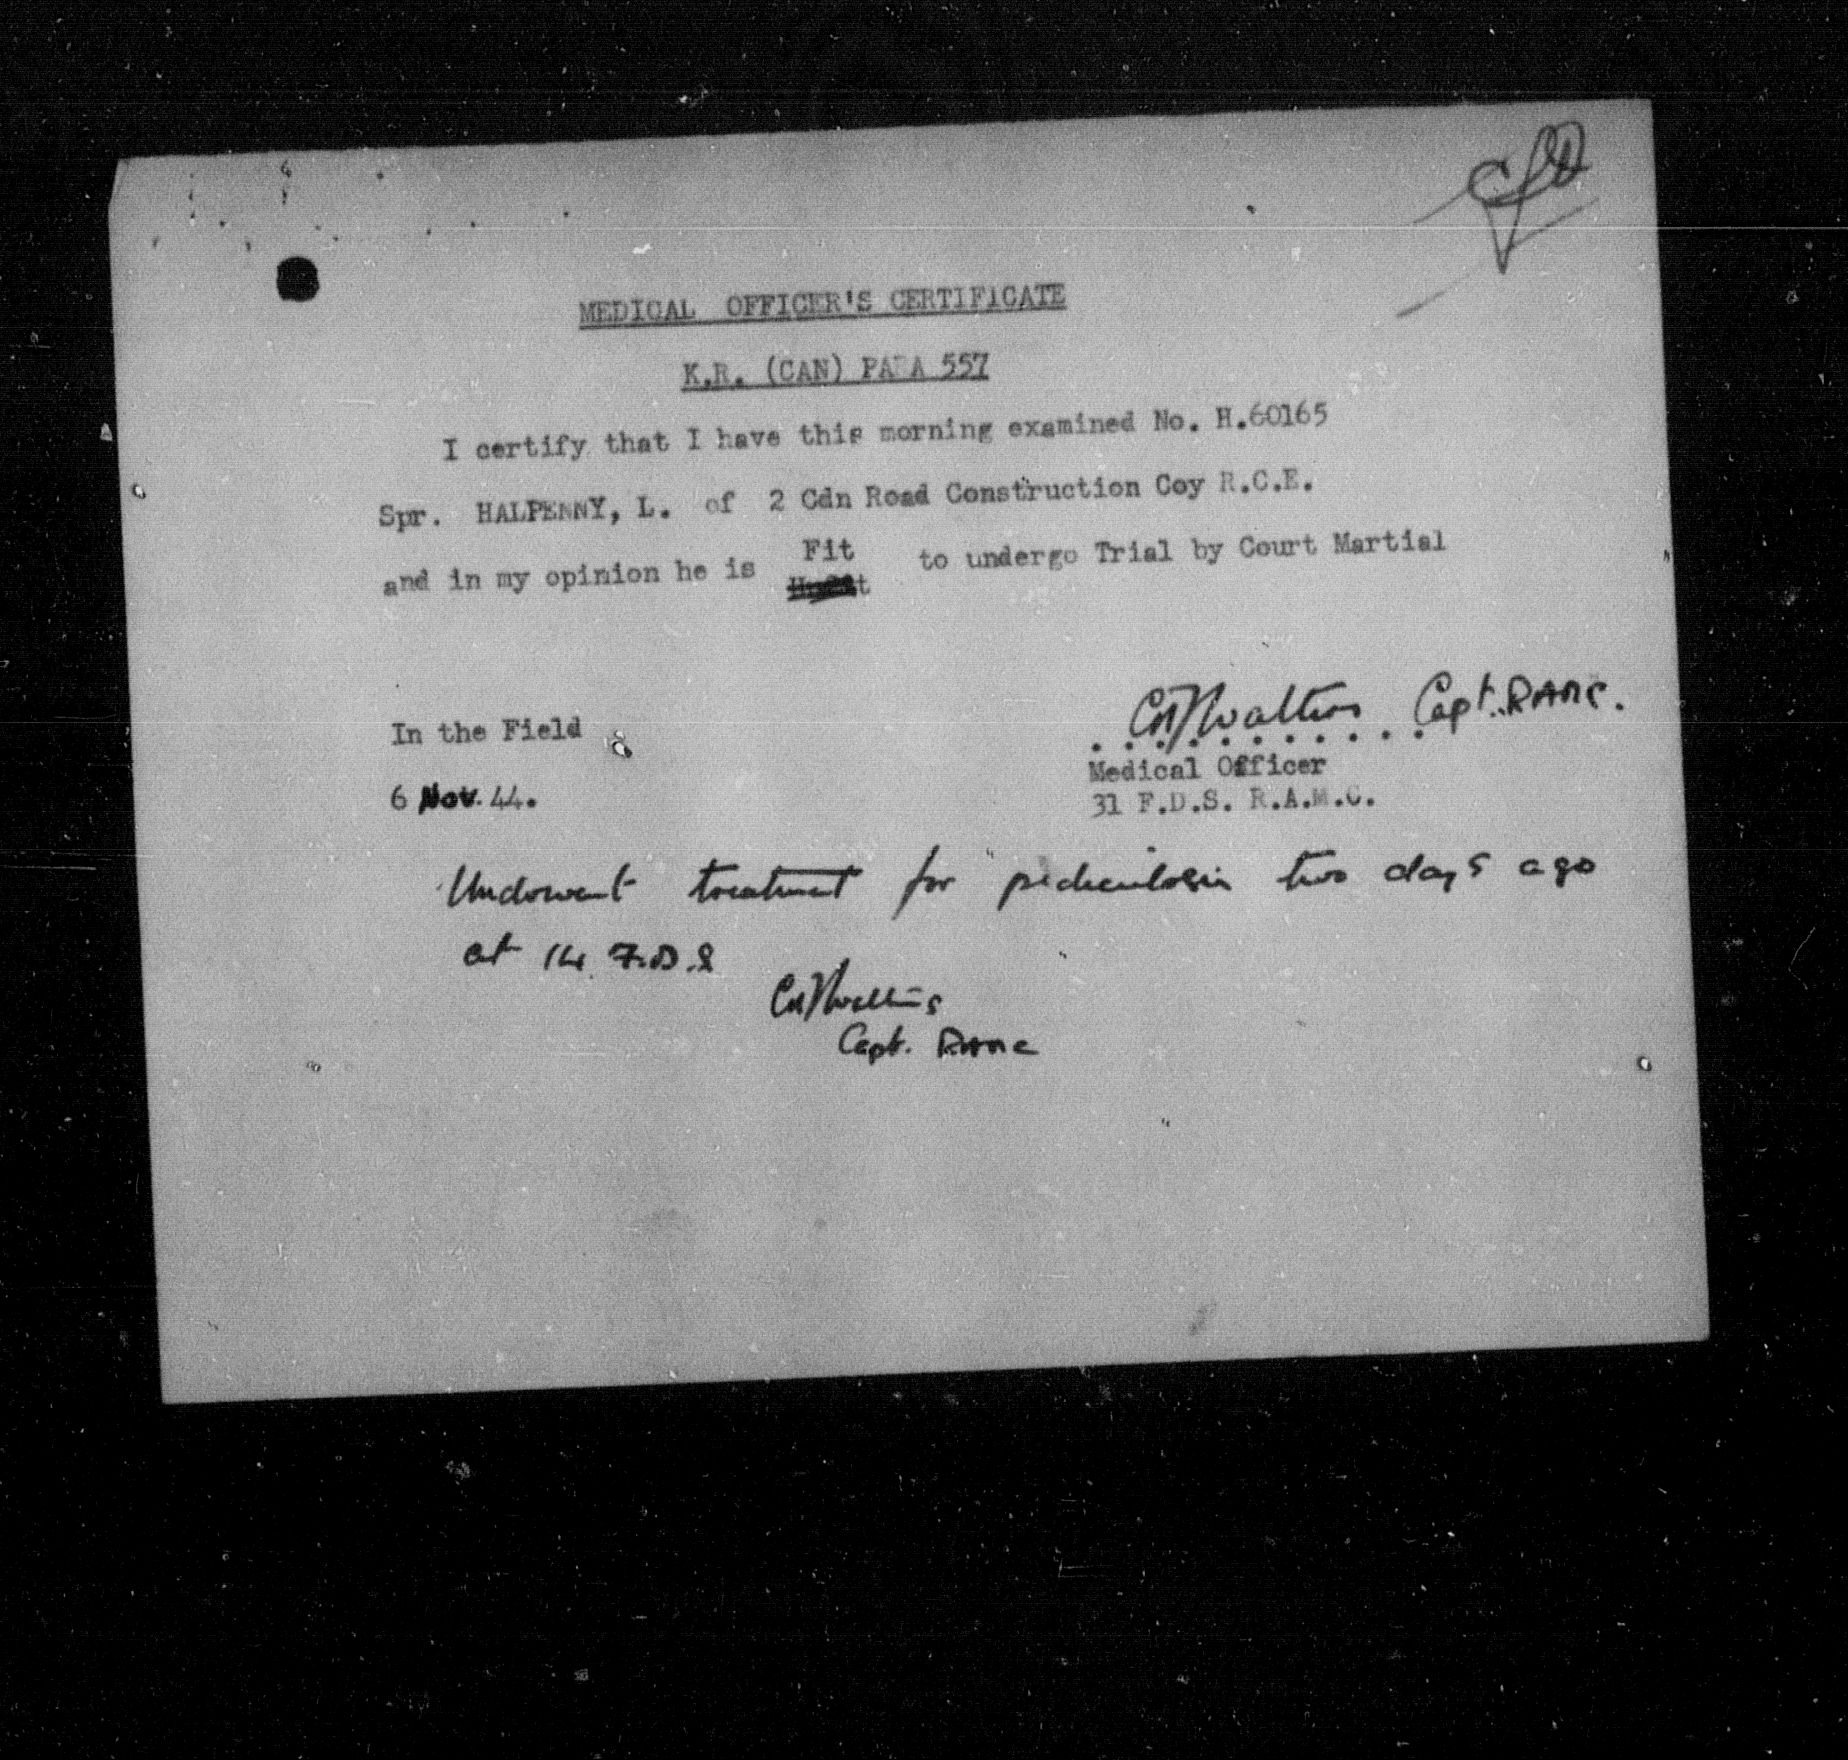 MEDICAL OFFICER'S CERTIFICATE
K.R. (CAN) PARA 557
I certify that I have this morning examined No. H.60165
Spr. HALPENNY, L. of 2 Cdn Road Construction Coy R.C.E.
and in my opinion he is Fit to undergo Trial by Court Martial
Capt. RAMC.
In the Field
Medical Officer
6 Nov. 44.
31 F.D.S. R.A.M.C.
Underwent treatment for pediculosis two days ago
at 14 F.D.S
Capt. RAMC